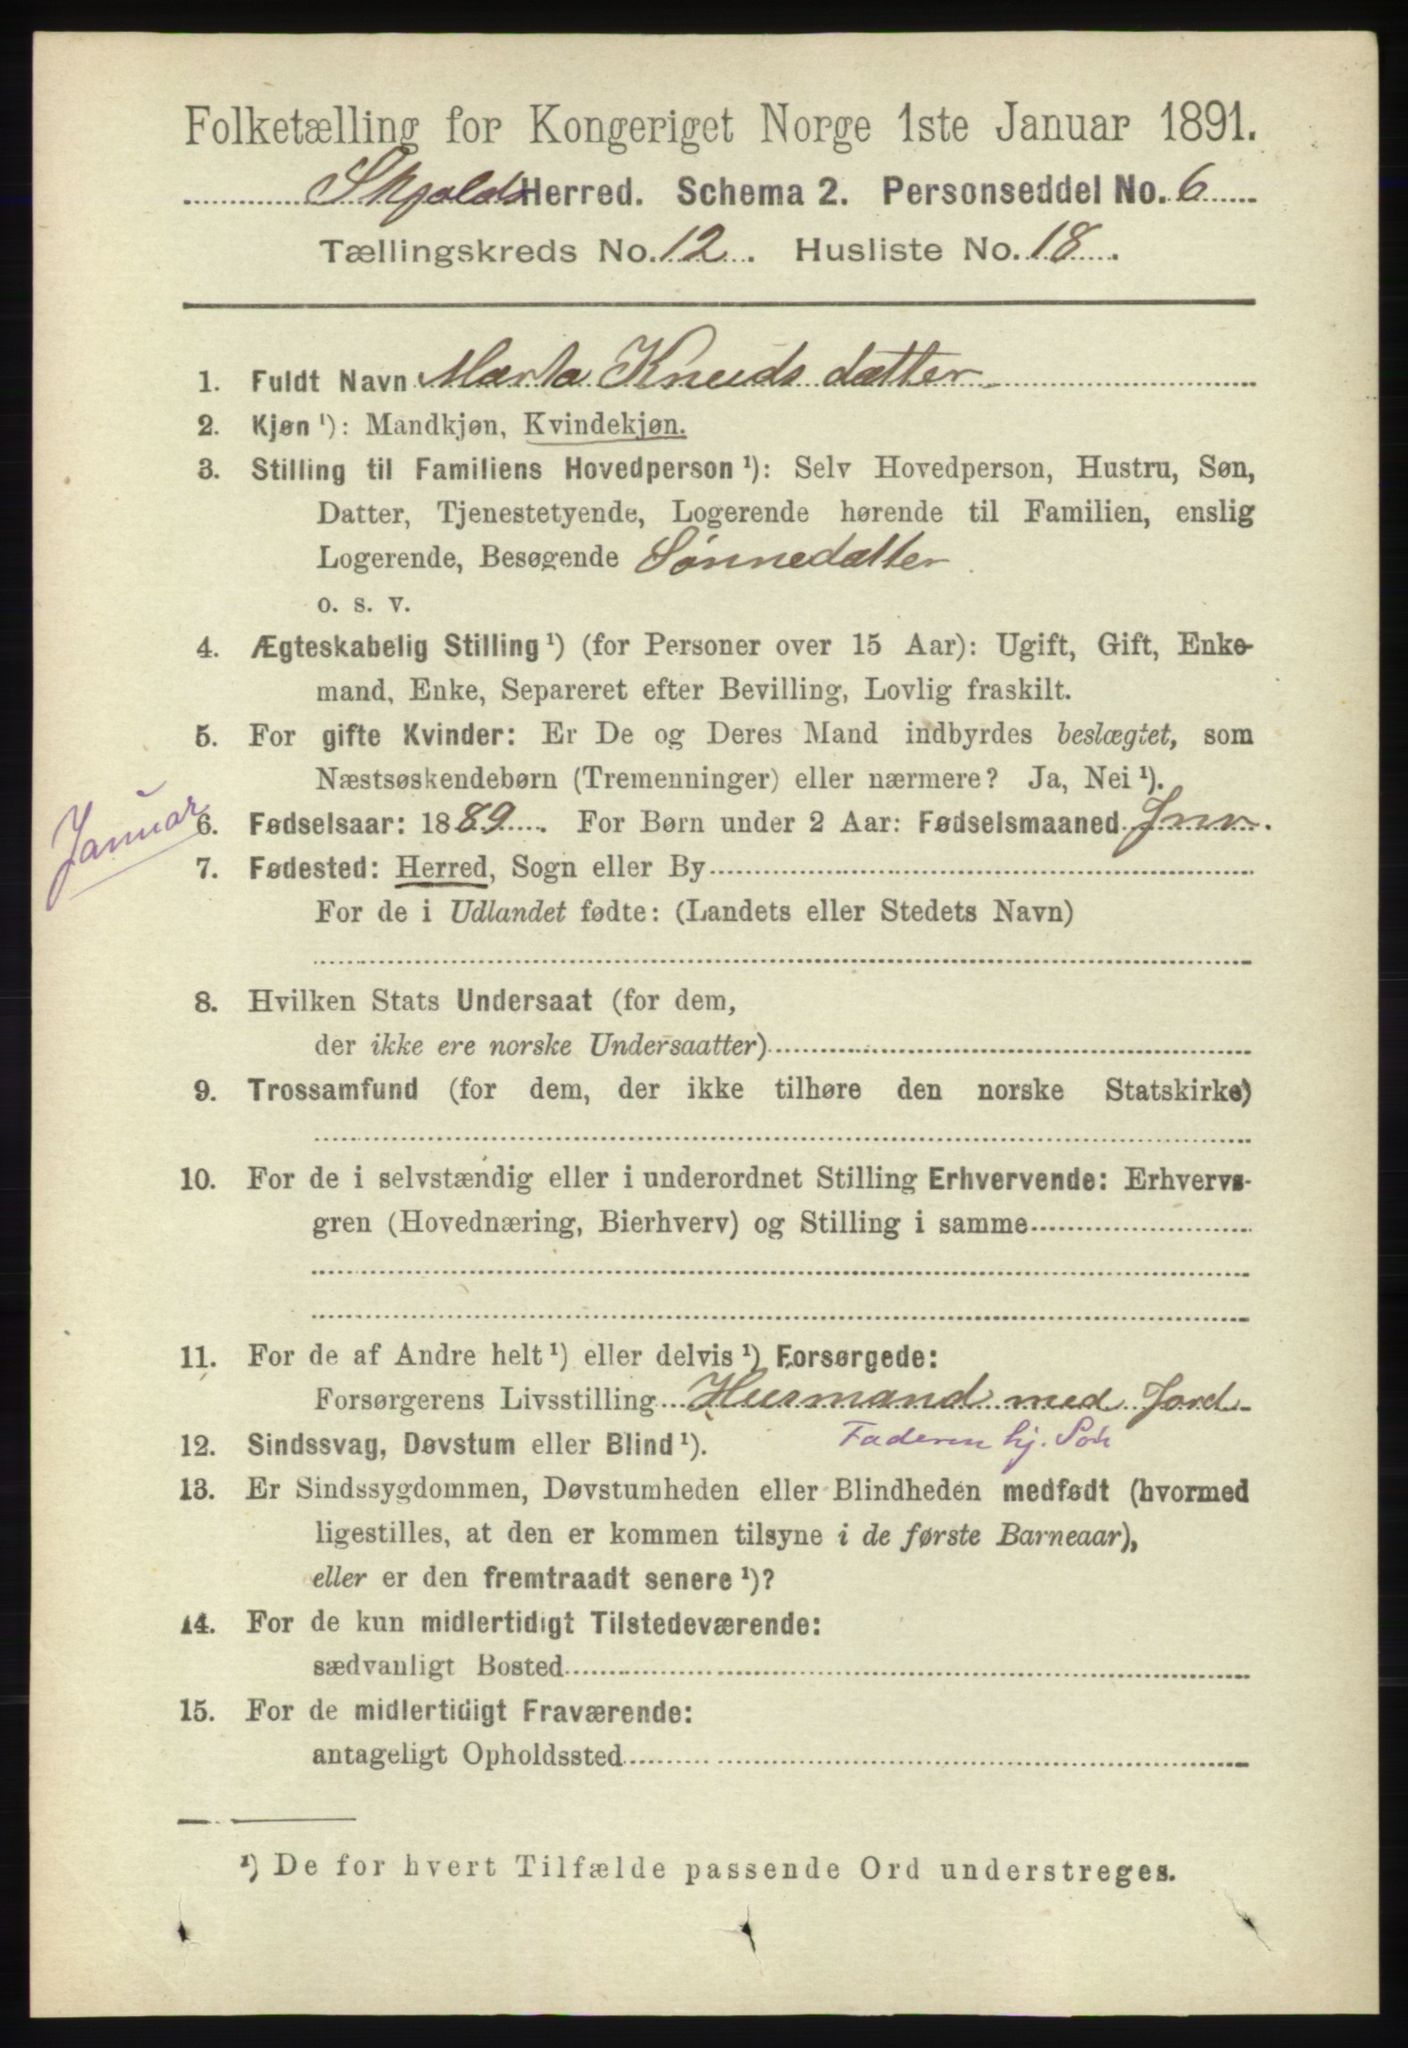 Folketælling for Kongeriget Norge 1ste Januar 1891.
Skjolds Herred. Schema 2. Personseddel No. 6
Tællingskreds No. 12. Husliste No. 18.
1. Fuldt Navn Marta Knudsdatter
2. Kjøn ¹): Mandkjøn, Kvindekjøn.
3. Stilling til Familiens Hovedperson ¹): Selv Hovedperson, Hustru, Søn,
Datter, Tjenestetyende, Logerende hørende til Familien, enslig
Logerende, Besøgende Sønnedatter
o. s. v.
4. Ægteskabelig Stilling ¹) (for Personer over 15 Aar): Ugift, Gift, Enke-
mand, Enke, Separeret efter Bevilling, Lovlig fraskilt.
5. For gifte Kvinder: Er De og Deres Mand indbyrdes beslægtet, som
Næstsøskendebørn (Tremenninger) eller nærmere? Ja, Nei ¹).
Januar
6. Fødselsaar: 1889. For Børn under 2 Aar: Fødselsmaaned
7. Fødested: Herred, Sogn eller By
For de i Udlandet fødte: (Landets eller Stedets Navn)
8. Hvilken Stats Undersaat (for dem,
der ikke ere norske Undersaatter)
9. Trossamfund (for dem, der ikke tilhøre den norske Statskirke)
10. For de i selvstændig eller i underordnet Stilling Erhvervende: Erhvervs-
gren (Hovednæring, Bierhverv) og Stilling i samme
11. For de af Andre helt ¹) eller delvis ¹) Forsørgede:
Forsørgerens Livsstilling Husmand med Jord
Faderen hj. Søn
12. Sindssvag, Døvstum eller Blind ¹).
13. Er Sindssygdommen, Døvstumheden eller Blindheden medfødt (hvormed
ligestilles, at den er kommen tilsyne i de første Barneaar),
eller er den fremtraadt senere ¹)?
14. For de kun midlertidigt Tilstedeværende:
sædvanligt Bosted
15. For de midlertidigt Fraværende:
antageligt Opholdssted
¹) De for hvert Tilfælde passende Ord understreges.